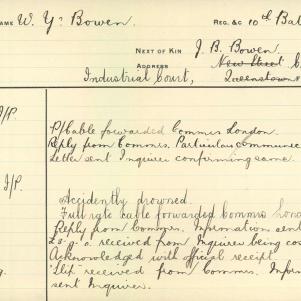 NAME W. Y. Bowen REG. &C 10th Bat
NEXT OF KIN J. B. Bowen,
ADDRESS New Street
Industrial Court, Queenstown
I/P. P/Cable forwarded Commrs London.
Reply from Commrs. Particulars communic
Letter sent Inquirer confirming same.
I/P. Accidently drowned.
Full rate cable forwarded Commrs Lond
Reply from Commrs. Information sent
received from Inquirer being cos
Acknowledged with official receipt
"Slip" received from Commrs. Infor
sent Inquirer.